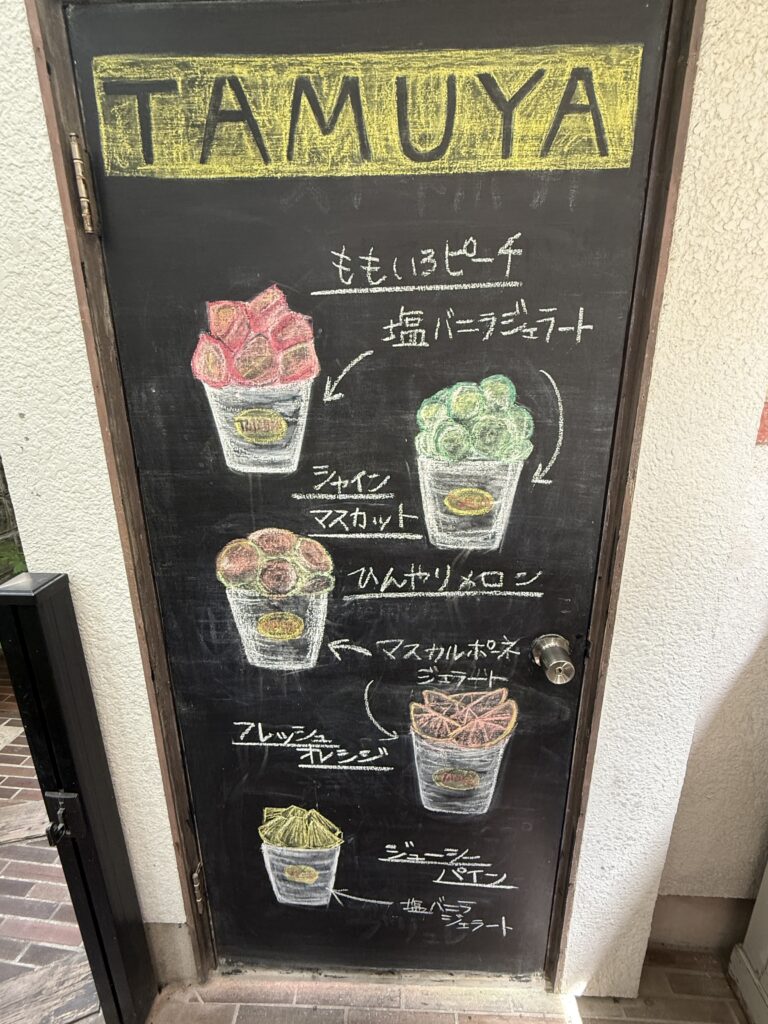 TAMUYA
ももいろピーチ
塩バニラジェラート
TAMUYA
シャイン
マスカット
ひんやりメロン
マスカルポーネ
ジェラート
フレッシュ
オレンジ
ジューシー
パイン
塩バニラ
ジェラート